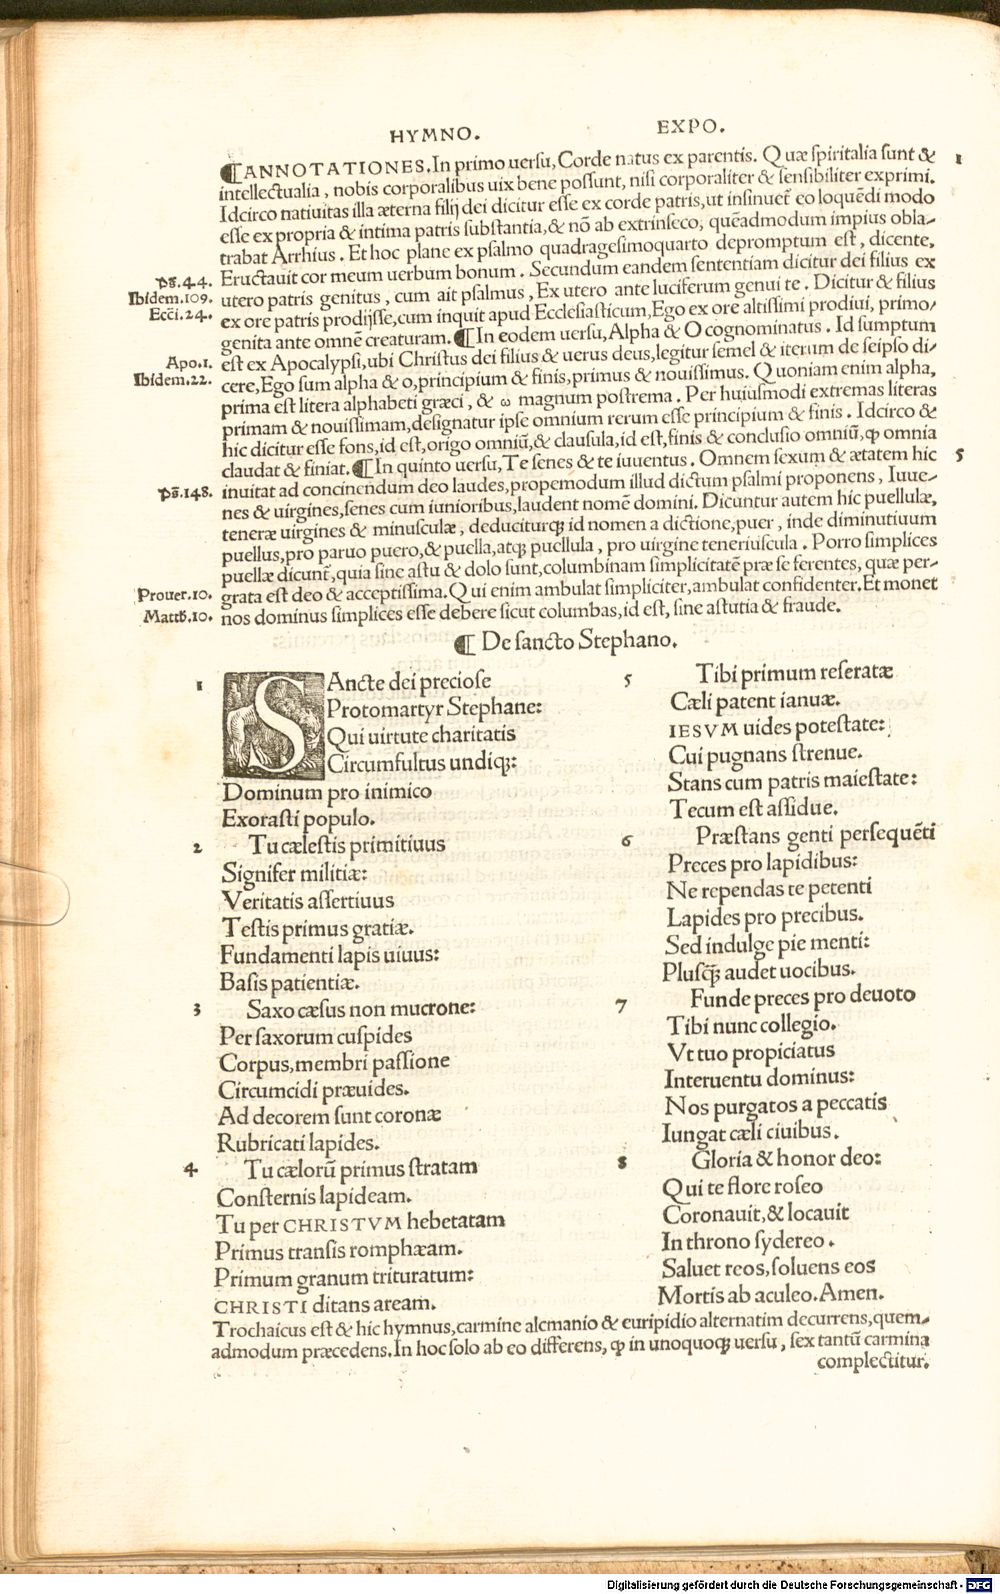 HYMNO. EXPO.
¶ANNOTATIONES. In primo uersu, Corde natus ex parentis. Quæ spiritalia sunt & 1
intellectualia, nobis corporalibus uix bene possunt, nisi corporaliter & sensibiliter exprimi.
Idcirco natiuitas illa æterna filij dei dicitur esse ex corde patris, ut insinuet̃ eo loquẽdi modo
esse ex propria & intima patris substantia, & nõ ab extrinseco, quẽadmodum impius obla-
trabat Arrhius. Et hoc plane ex psalmo quadragesimoquarto depromptum est, dicente,
Ps̃.44. Eructauit cor meum uerbum bonum. Secundum eandem sententiam dicitur dei filius ex
Ibidem.109. utero patris genitus, cum ait psalmus, Ex utero ante luciferum genui te. Dicitur & filius
Ecci.24. ex ore patris prodijsse, cum inquit apud Ecclesiasticum, Ego ex ore altissimi prodiui, primo-
genita ante omnẽ creaturam. ¶In eodem uersu, Alpha & O cognominatus. Id sumptum
Apo.1. est ex Apocalypsi, ubi Christus dei filius & uerus deus, legitur semel & iterum de seipso di-
Ibidem.22. cere, Ego sum alpha & o, principium & finis, primus & nouissimus. Quoniam enim alpha,
prima est litera alphabeti græci, & ω magnum postrema. Per huiusmodi extremas literas
primam & nouissimam, designatur ipse omnium rerum esse principium & finis. Idcirco &
hic dicitur esse fons, id est, origo omniũ, & clausula, id est, finis & conclusio omniũ, ꝙ omnia
claudat & finiat. ¶In quinto uersu, Te senes & te iuuentus. Omnem sexum & ætatem hic 5
Ps̃.148. inuitat ad concinendum deo laudes, propemodum illud dictum psalmi proponens, Iuue-
nes & uirgines, senes cum iunioribus, laudent nomẽ domini. Dicuntur autem hic puellulæ,
teneræ uirgines & minusculæ, deduciturqꝫ id nomen a dictione, puer, inde diminutiuum
puellus, pro paruo puero, & puella, atqꝫ puellula, pro uirgine teneriuscula. Porro simplices
puellæ dicunt̃, quia sine astu & dolo sunt, columbinam simplicitatẽ præ se ferentes, quæ per-
Prouer.10. grata est deo & acceptissima. Qui enim ambulat simpliciter, ambulat confidenter. Et monet
Matth.10. nos dominus simplices esse debere sicut columbas, id est, sine astutia & fraude.
¶ De sancto Stephano.
1 SAncte dei preciose
Protomartyr Stephane:
Qui uirtute charitatis
Circumfultus undiqꝫ:
Dominum pro inimico
Exorasti populo.
2 Tu cælestis primitiuus
Signifer militiæ:
Veritatis assertiuus
Testis primus gratiæ.
Fundamenti lapis uiuus:
Basis patientiæ.
3 Saxo cæsus non mucrone:
Per saxorum cuspides
Corpus, membri passione
Circumcidi præuides.
Ad decorem sunt coronæ
Rubricati lapides.
4 Tu cælorũ primus stratam
Consternis lapideam.
Tu per CHRISTVM hebetatam
Primus transis romphæam.
Primum granum trituratum:
CHRISTI ditans aream.
5 Tibi primum reseratæ
Cæli patent ianuæ.
IESVM uides potestate:
Cui pugnans strenue.
Stans cum patris maiestate:
Tecum est assidue.
6 Præstans genti persequẽti
Preces pro lapidibus:
Ne rependas te petenti
Lapides pro precibus.
Sed indulge pie menti:
Plusqꝫ̃ audet uocibus.
7 Funde preces pro deuoto
Tibi nunc collegio.
Vt tuo propiciatus
Interuentu dominus:
Nos purgatos a peccatis
Iungat cæli ciuibus.
8 Gloria & honor deo:
Qui te flore roseo
Coronauit, & locauit
In throno sydereo.
Saluet reos, soluens eos
Mortis ab aculeo. Amen.
Trochaicus est & hic hymnus, carmine alcmanio & euripidio alternatim decurrens, quem-
admodum præcedens. In hoc solo ab eo differens, ꝙ in unoquoqꝫ uersu, sex tantũ carmina
complectitur.
Digitalisierung gefördert durch die Deutsche Forschungsgemeinschaft - DFG